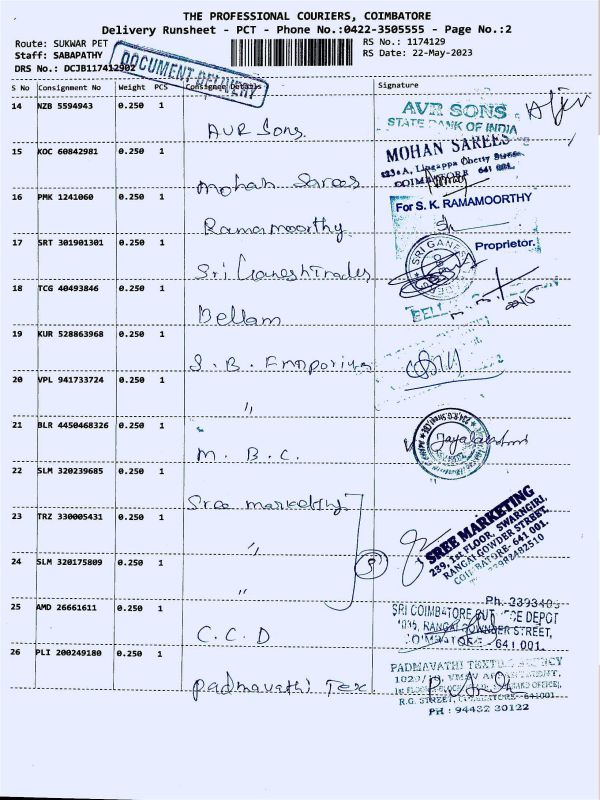 THE PROFESSIONAL COURIERS, COIMBATORE
Delivery Runsheet - PCT - Phone No.:0422-3505555 - Page No.:2
Route: SUKWAR PET
RS No.: 1174129
Staff: SABAPATHY
RS Date: 22-May-2023
DRS No.: DCJB117412902
DOCUMENT DELIVERY
S No Consignment No Weight PCS Consignee Details Signature
14 NZB 5594943 0.250 1
AVR Sons.
AVR SONS
STATE BANK OF INDIA
15 KOC 60842981 0.250 1
Mohan Sarees
MOHAN SAREES
Lingappa Chetty Street
COIMBATORE 641 001.
16 PMK 1241060 0.250 1
Ramamoorthy
For S. K. RAMAMOORTHY
Proprietor.
17 SRT 301901301 0.250 1
Sri Ganesh Trades
SRI GANESH
18 TCG 40493846 0.250 1
Bellam
19 KUR 528863968 0.250 1
S. B. Emporiym
20 VPL 941733724 0.250 1
"
21 BLR 4450468326 0.250 1
M. B. C.
Jayalakshmi
22 SLM 320239685 0.250 1
Sree marketing
SREE MARKETING
239, 1st FLOOR, SWARNGIRI,
RANGAI GOWDER STREET,
COIMBATORE- 641 001.
23 TRZ 330005431 0.250 1
"
24 SLM 320175809 0.250 1
"
25 AMD 26661611 0.250 1
C. C. D
SRI COIMBATORE
RANGAI GOWNDER STREET,
COIMBATORE - 641 001.
26 PLI 200249180 0.250 1
Padmavathi Tex
PADMAVATHI TEXTILE AGENCY
R.G. STREET, COIMBATORE-641001
PH : 94432 30122